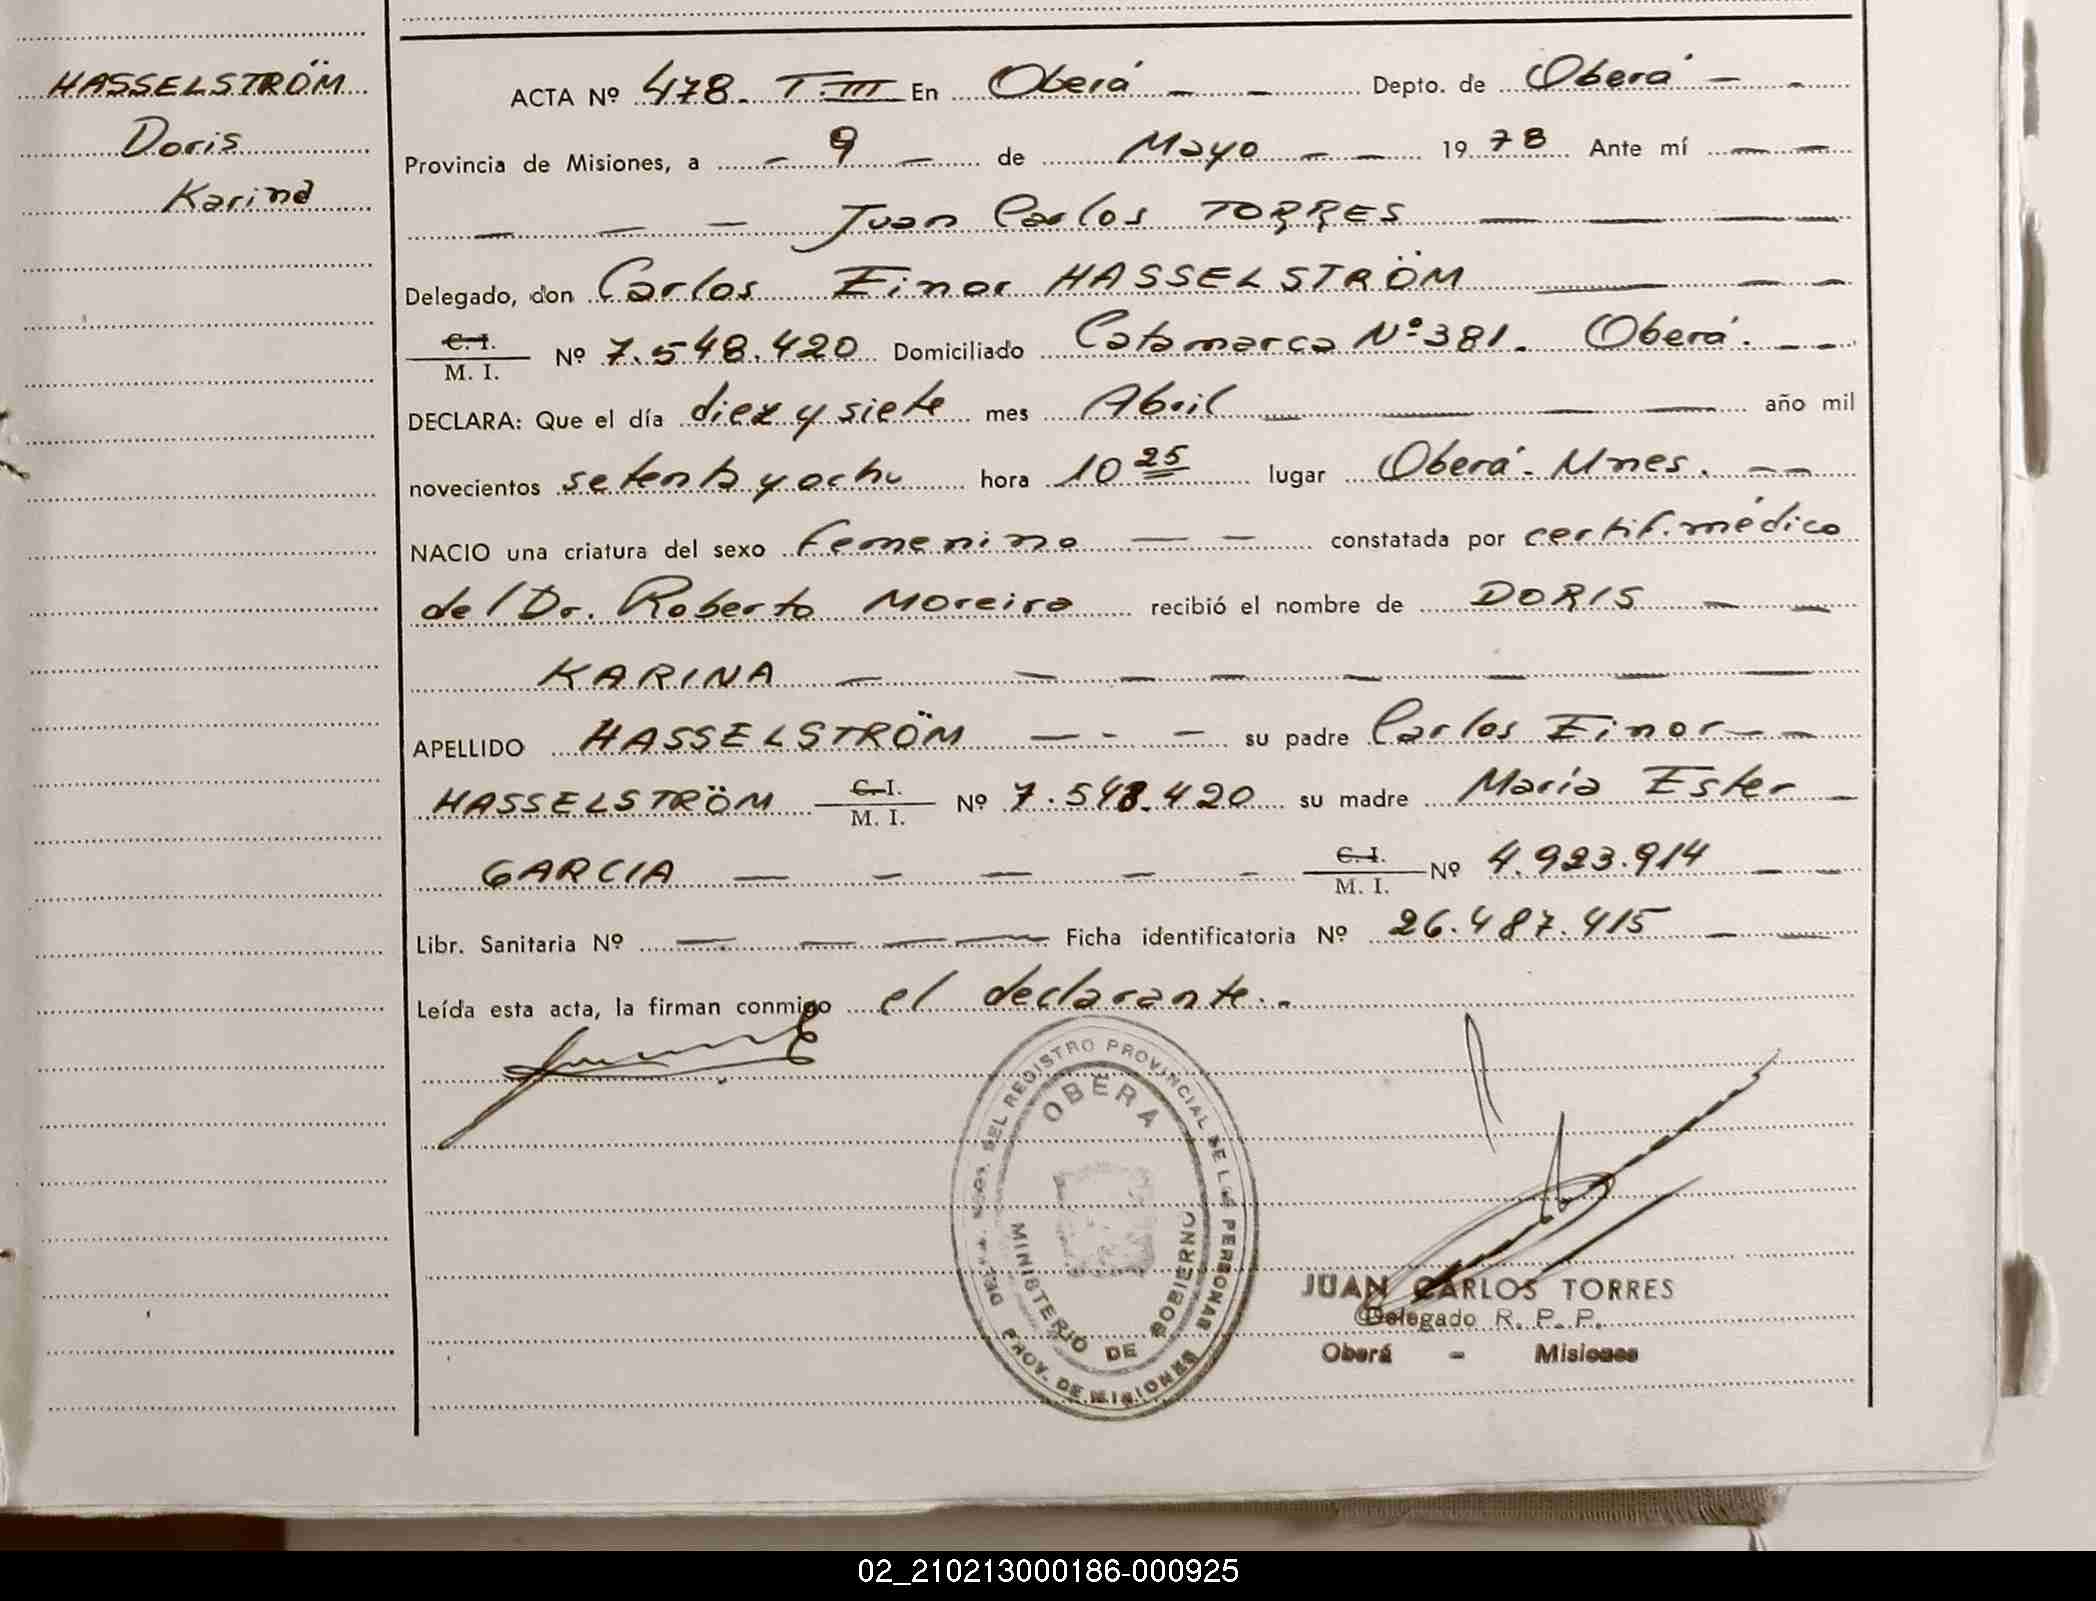 HASSELSTRÖM
Doris
Karina
ACTA Nº 478. T.III En Oberá - - Depto. de Oberá - -
Provincia de Misiones, a - 9 - de Mayo - - 1978 Ante mí - -
- - - Juan Carlos TORRES - - -
Delegado, don Carlos Einor HASSELSTRÖM - - -
C.I.
M. I. Nº 7.548.420 Domiciliado Catamarca Nº 381. Oberá. - -
DECLARA: Que el día diez y siete mes Abril - - - - año mil
novecientos setenta y ocho hora 10 25 lugar Oberá - Mnes. - -
NACIO una criatura del sexo femenino - - constatada por certif. médico
del Dr. Roberto Moreira recibió el nombre de DORIS - -
KARINA - - - - - - - -
APELLIDO HASSELSTRÖM - - - su padre Carlos Einor - -
HASSELSTRÖM C.I.
M. I. Nº 7.548.420 su madre María Ester -
GARCIA - - - - - C.I.
M. I. Nº 4.923.914 - -
Libr. Sanitaria Nº - - - - Ficha identificatoria Nº 26.487.415 - -
Leída esta acta, la firman conmigo el declarante. -
DEL REGISTRO PROVINCIAL DE LAS PERSONAS
OBERA
MINISTERIO DE GOBIERNO
PROV. DE MISIONES
JUAN CARLOS TORRES
Delegado R. P. P.
Oberá - Misiones
02_210213000186-000925